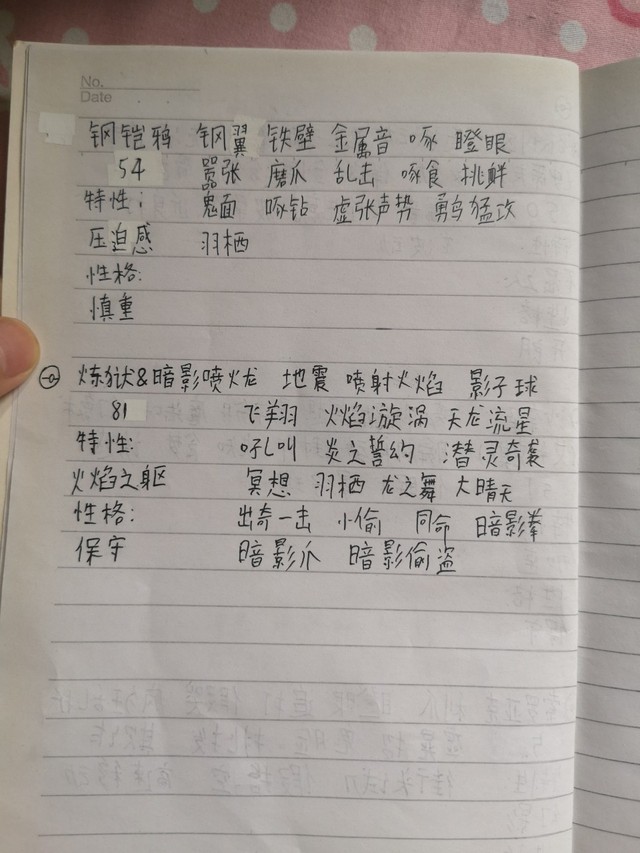 No.
Date
钢铠鸦 钢翼 铁壁 金属音 啄 瞪眼
54 嚣张 磨爪 乱击 啄食 挑衅
特性: 鬼面 啄钻 虚张声势 勇鸟猛攻
压迫感 羽栖
性格:
慎重
炼狱&暗影喷火龙 地震 喷射火焰 影子球
81 飞翔 火焰漩涡 天龙流星
特性: 吼叫 炎之誓约 潜灵奇袭
火焰之躯 冥想 羽栖 龙之舞 大晴天
性格: 出奇一击 小偷 同命 暗影拳
保守 暗影爪 暗影偷盗